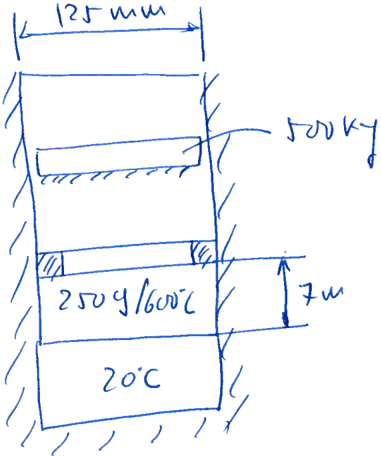 125 mm
500 kg
250 g/600°C
7 m
20°C